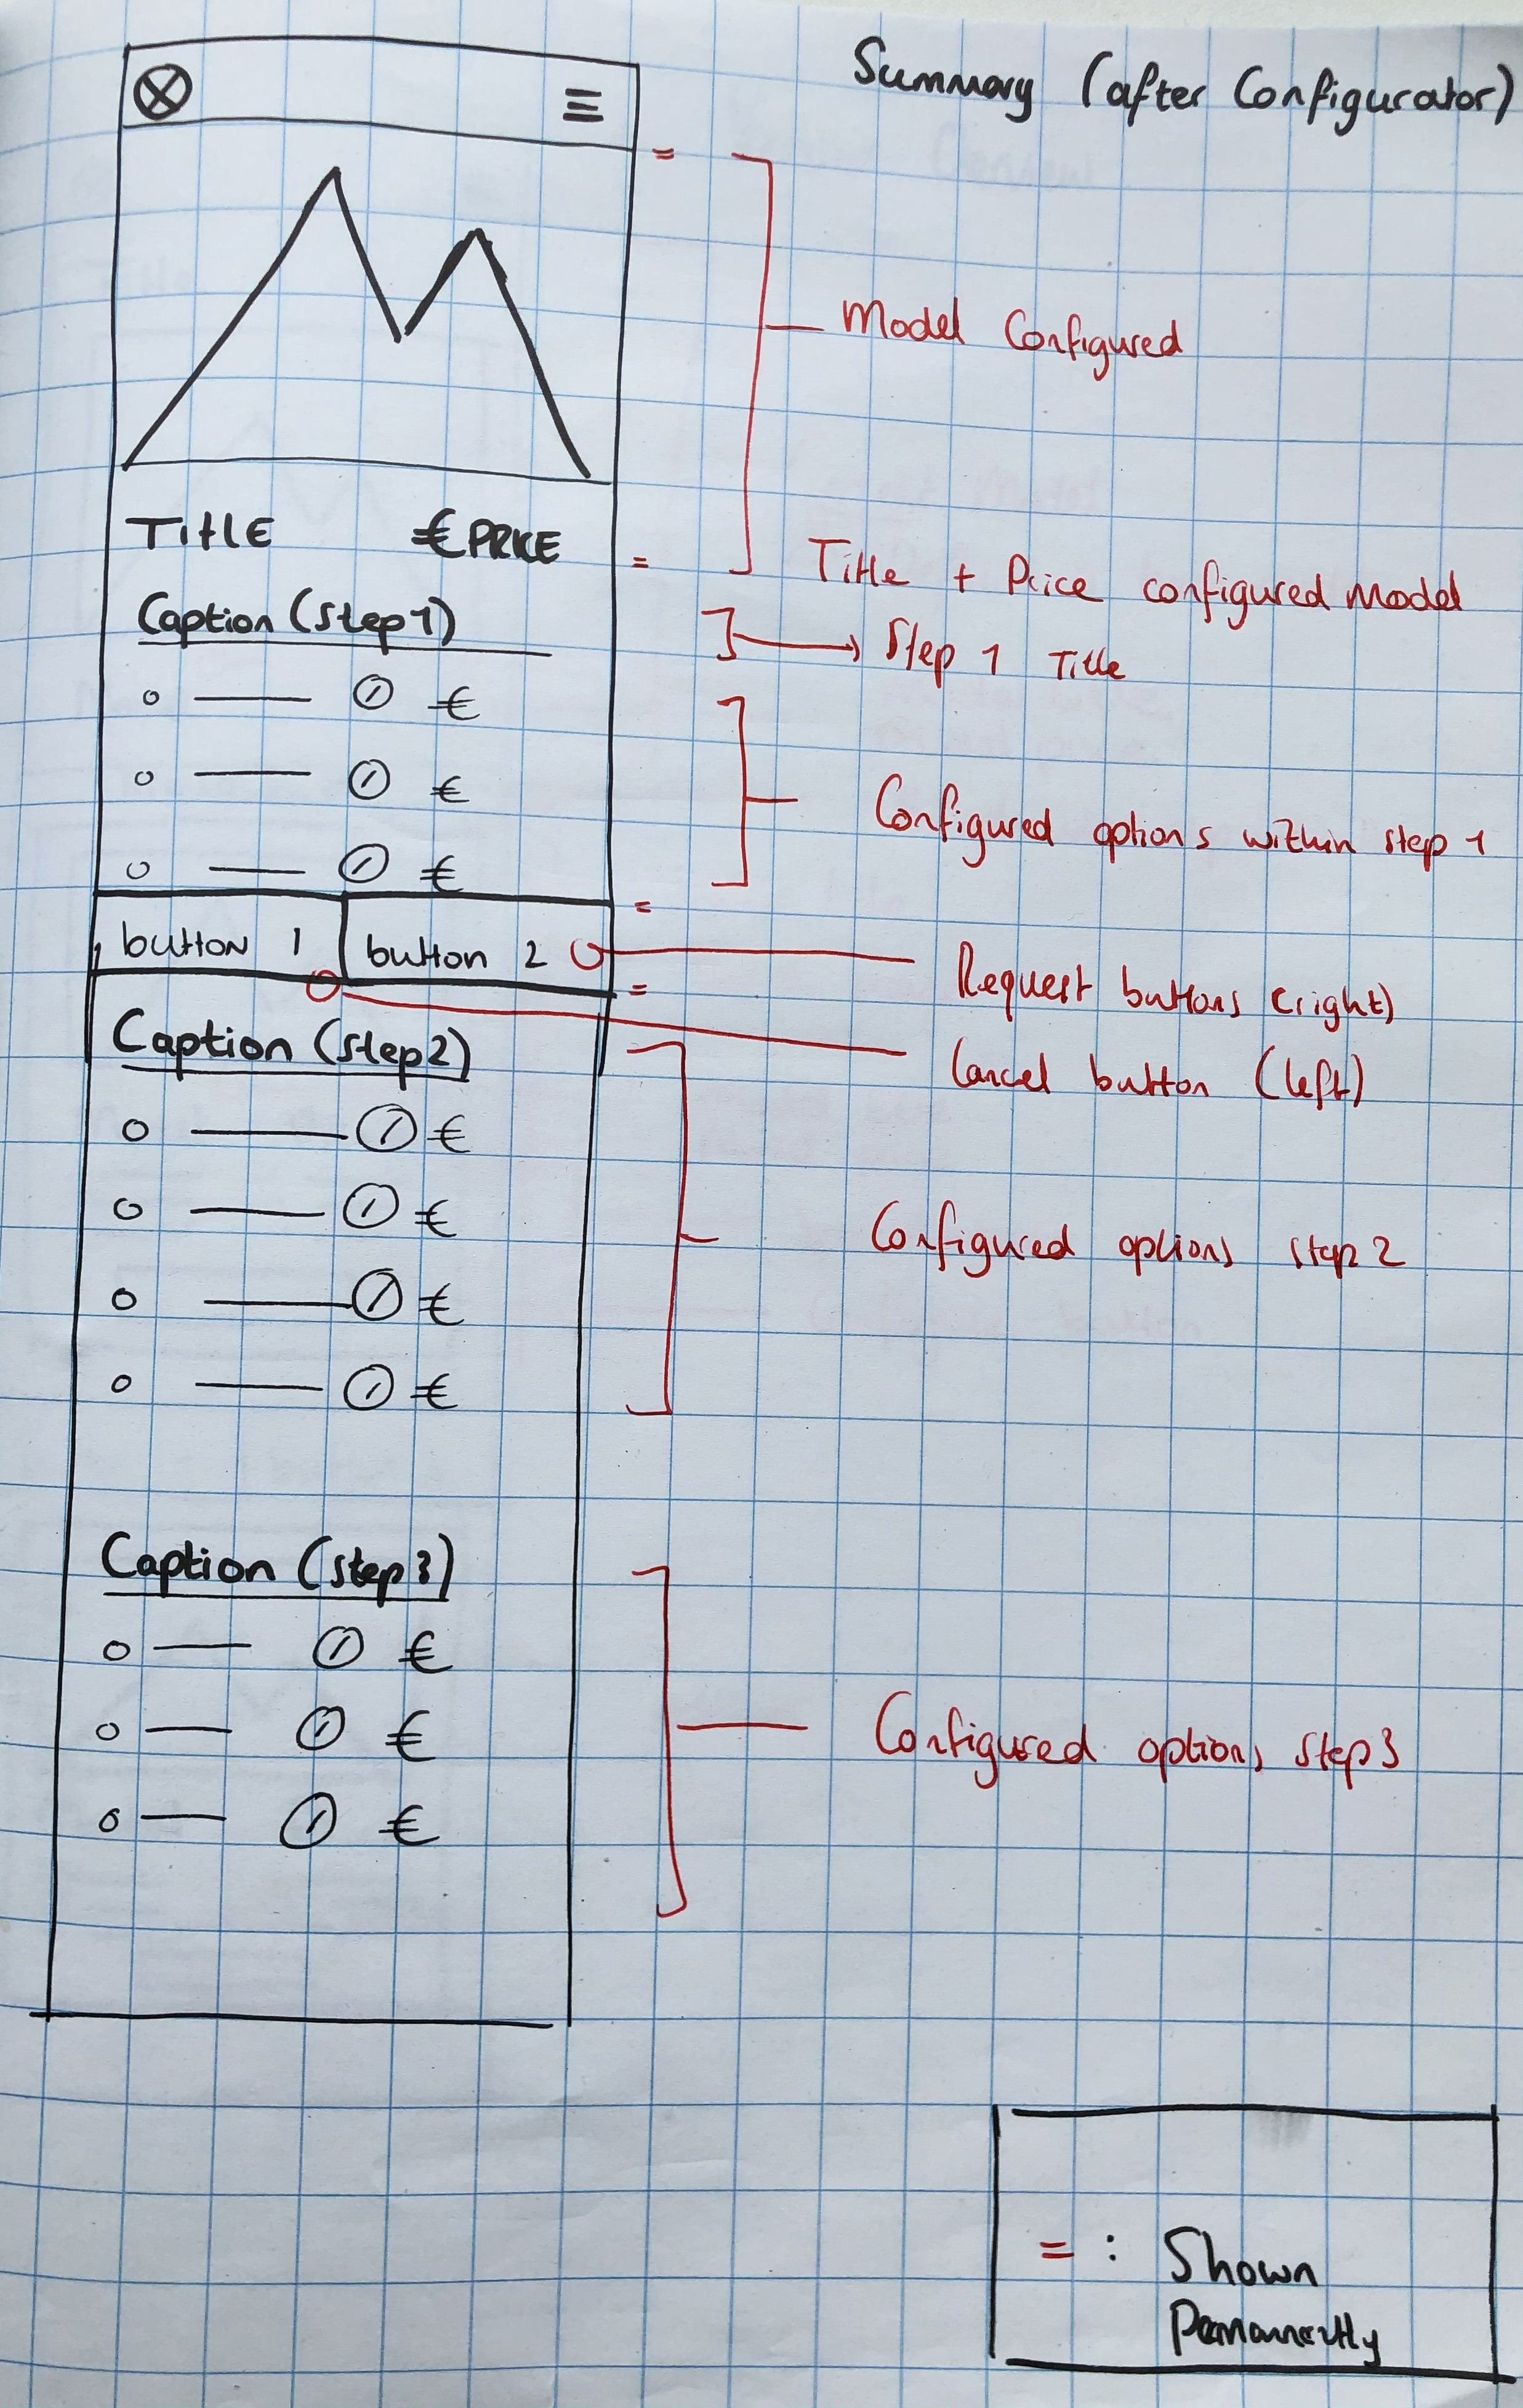 Summary (after Configurator)
Model Configured
TitlE €PRICE
Title + Price configured model
Caption (Step 1)
Step 1 Title
€
€
Configured options within step 1
€
button 1 button 2
Request buttons (right)
Cancel button (left)
Caption (step2)
€
€
Configured options step 2
€
€
Caption (step3)
€
€
Configured options step3
€
= : Shown
Permanently